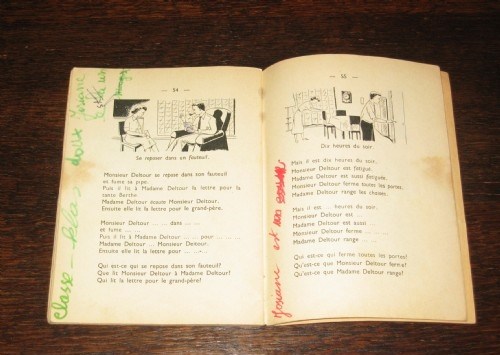 — 54 —
Se reposer dans un fauteuil.
Monsieur Deltour se repose dans son fauteuil
et fume sa pipe.
Puis il lit à Madame Deltour la lettre pour la
tante Berthe.
Madame Deltour écoute Monsieur Deltour.
Ensuite elle lit la lettre pour le grand-père.
Monsieur Deltour ... ... dans ... ...
et fume ... ...
Puis il lit à Madame Deltour ... ... pour ... ...
Madame Deltour ... Monsieur Deltour.
Ensuite elle lit la lettre pour ... ...
Qui est-ce qui se repose dans son fauteuil?
Que lit Monsieur Deltour à Madame Deltour?
Qui lit la lettre pour le grand-père?
classe
Josiane
— 55 —
Dix heures du soir.
Mais il est dix heures du soir.
Monsieur Deltour est fatigué.
Madame Deltour est aussi fatiguée.
Monsieur Deltour ferme toutes les portes.
Madame Deltour range les chaises.
Mais il est ... heures du soir.
Monsieur Deltour est ...
Madame Deltour est aussi ...
Monsieur Deltour ferme ... ...
Madame Deltour range ... ...
Qui est-ce qui ferme toutes les portes?
Qu'est-ce que Monsieur Deltour ferme?
Qu'est-ce que Madame Deltour range?
Josiane est un